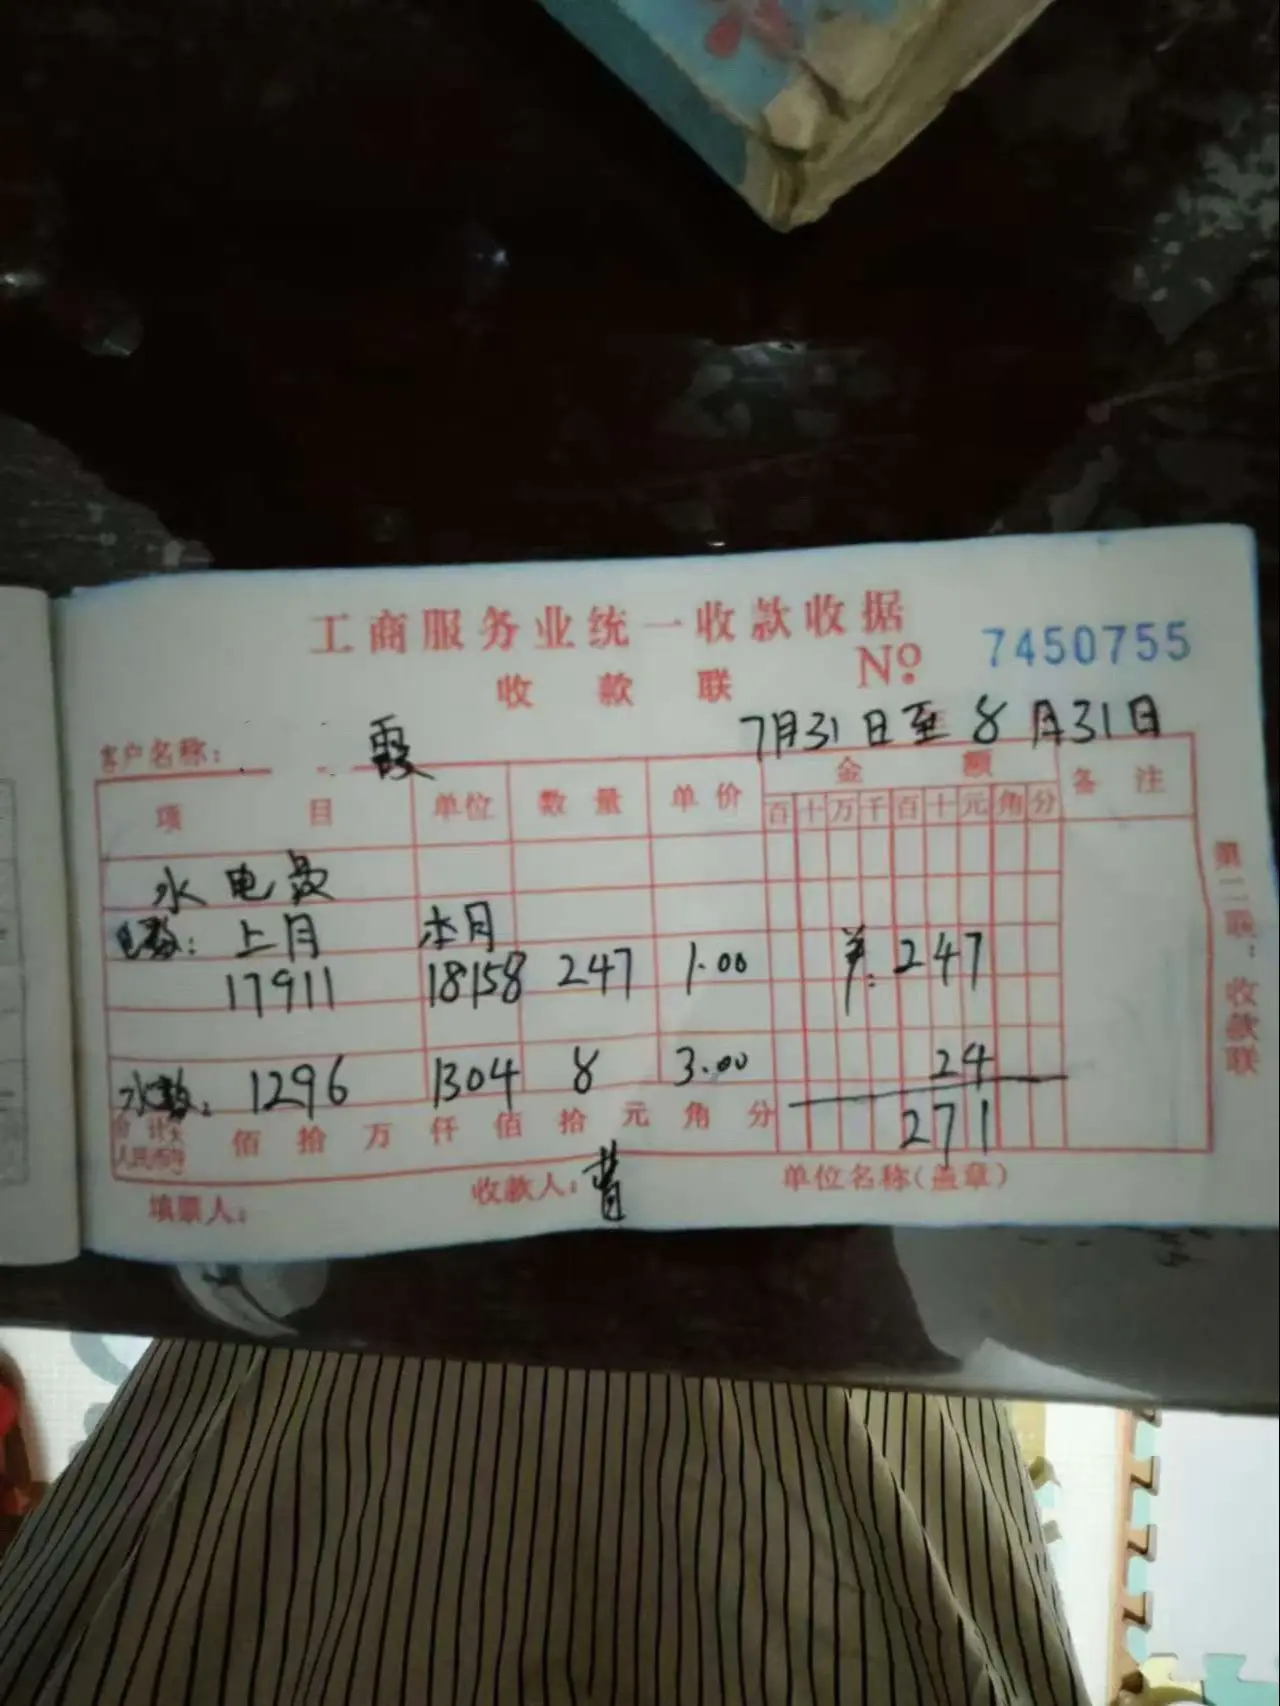 工商服务业统一收款收据
收款联 № 7450755
客户名称： 霞 7月31日至8月31日
项目 单位 数量 单价 金额 备注
百十万千百十元角分
水电费
电数：上月 本月
17911 18158 247 1.00 ¥：247
水数：1296 1304 8 3.00 24
合计 人民币 佰拾万仟佰拾元角分 271
填票人： 收款人： 单位名称（盖章）
第二联：收款联